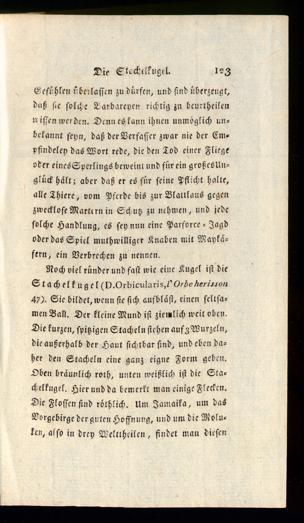 Die Stachelkugel. 123
Gefühlen überlassen zu dürfen, und sind überzeugt,
daß sie solche Barbareyen richtig zu beurtheilen
wissen werden. Denn es kann ihnen nicht un-
bekannt seyn, daß der Verfasser zwar nie der Em-
pfindeley das Wort rede, die den Tod einer Fliege
oder eines Sperlings beweint und für ein großes Un-
glück hält; aber daß er es für seine Pflicht halte,
alle Thiere, vom Pferde bis zur Blattlaus gegen
zwecklose Martern in Schutz zu nehmen, und jede
solche Handlung, es sey nun eine Parforce-Jagd
oder das Spiel muthwilliger Knaben mit Maykä-
fern, ein Verbrechen zu nennen.
Noch viel ründer und fast wie eine Kugel ist die
Stachelkugel (D. Orbicularis, l'Orbe herisson
47). Sie bildet, wenn sie sich aufbläst, einen seltsa-
men Ball. Der kleine Mund ist ziemlich weit oben.
Die kurzen, spitzigen Stacheln stehen auf 3 Wurzeln,
die außerhalb der Haut sichtbar sind, und eben da-
her den Stacheln eine ganz eigne Form geben.
Oben bräunlich roth, unten weißlich ist die Sta-
chelkugel. Hier und da bemerkt man einige Flecken.
Die Flossen sind röthlich. Um Jamaika, um das
Vorgebirge der guten Hoffnung, und um die Molu-
ken, also in drey Welttheilen, findet man diesen